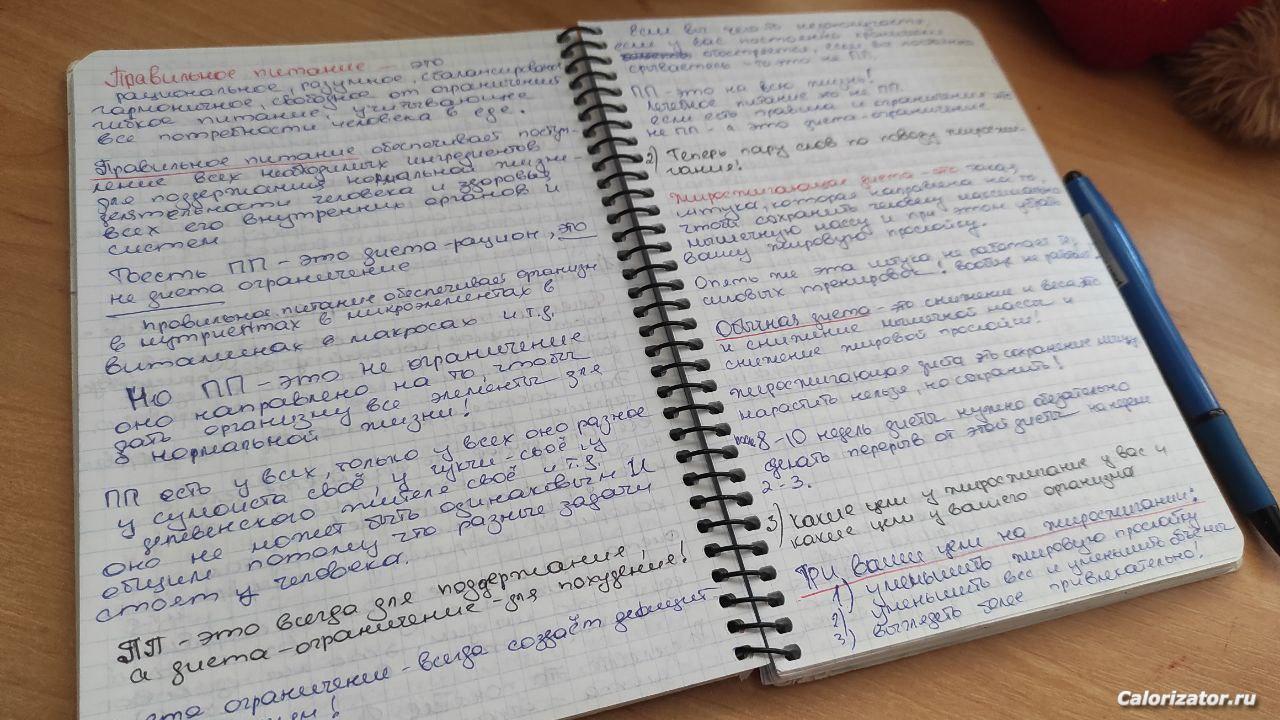 Правильное питание - это
рациональное, разумное, сбалансированное
гармоничное, свободное от ограничений
гибкое питание, учитывающее
все потребности человека в еде.
Правильное питание обеспечивает поступ-
ление всех необходимых ингредиентов
для поддержания нормальной жизне-
деятельности человека и здоровья
всех его внутренних органов и
систем
Тоесть ПП - это диета-рацион, это
не диета ограничение
правильное питание обеспечивает организм
в нутриентах в микроэлементах в
витаминах в макросах и.т.д.
Но ПП - это не ограничение
оно направлено на то, чтобы
дать организму все элементы для
нормальной жизни!
ПП есть у всех, только у всех оно разное
у сумоиста своё, у чукчи - своё, у
деревенского жителя своё и.т.д.
оно не может быть одинаковым и
общим потому что разные задачи
стоят у человека.
ПП - это всегда для поддержание,
а диета - ограничение - для похудение!
ограничение - всегда создаёт дефицит
Если вы чего то
если у вас постоянно хронические
обостряется, если вы постоянно
срываетесь - то это не ПП.
ПП - это на всю жизнь!
Лечебное питание это не ПП.
если есть правила и ограничения это
не ПП - а это диета-ограничение
2) Теперь пару слов по поводу жиросжи-
гания!
Жиросжигающая диета - это такая
штука, которая направлена на то
чтобы сохранить человеку максимально
мышечную массу и при этом убрать
вашу жировую прослойку.
Опять же эта штука не работает без
силовых тренировок! вообще не работает
Обычная диета - это снижение и веса
и снижение мышечной массы и
снижение жировой прослойки!
жиросжигающая диета это сохранение мышц
нарастить нельзя, но сохранить!
8-10 недель диеты нужно обязательно
делать перерыв от этой диеты недели
2-3.
3) какие цели у жиросжигание у вас и
какие цели у вашего организма
Три ваши цели на жиросжигании:
1) уменьшить жировую прослойку
2) уменьшить вес и уменьшить объёмы
3) выглядеть более привлекательно!
Calorizator.ru